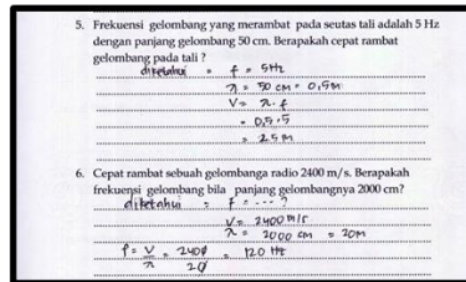 5. Frekuensi gelombang yang merambat pada seutas tali adalah 5 Hz
dengan panjang gelombang 50 cm. Berapakah cepat rambat
gelombang pada tali ?
diketahui = f = 5Hz
λ = 50 cm = 0,5m
V = λ . f
= 0,5 . 5
= 25 m
6. Cepat rambat sebuah gelombanga radio 2400 m/s. Berapakah
frekuensi gelombang bila panjang gelombangnya 2000 cm?
diketahui : f = ... ?
V = 2400 m/s
λ = 2000 cm = 20m
f = V/λ = 2400/20 = 120 Hz